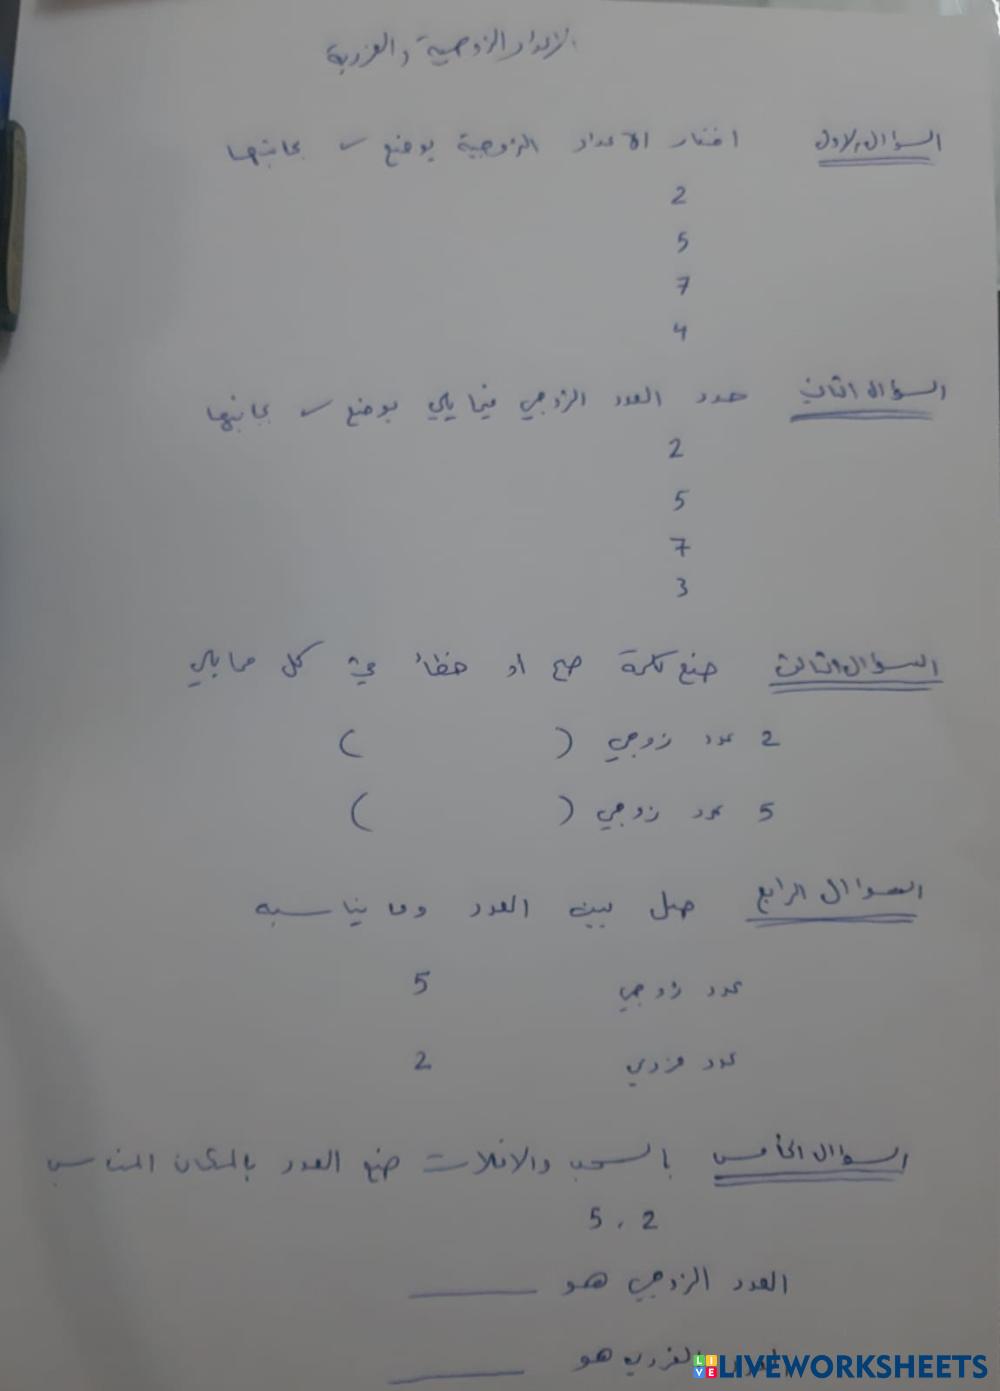 الاعداد الزوجية والفردية
السؤال الاول اختار الاعداد الزوجية بوضع ✓ بجانبها
2
5
7
4
السؤال الثاني حدد العدد الزوجي فيما يلي بوضع ✓ بجانبها
2
5
7
3
السؤال الثالث ضع كلمة صح او خطأ في كل مما يلي
2 عدد زوجي ( )
5 عدد زوجي ( )
السؤال الرابع صل بين العدد وما يناسبه
عدد زوجي 5
عدد فردي 2
السؤال الخامس بالسحب والافلات ضع العدد بالمكان المناسب
2 ، 5
العدد الزوجي هو ______
العدد الفردي هو ______
LIVEWORKSHEETS